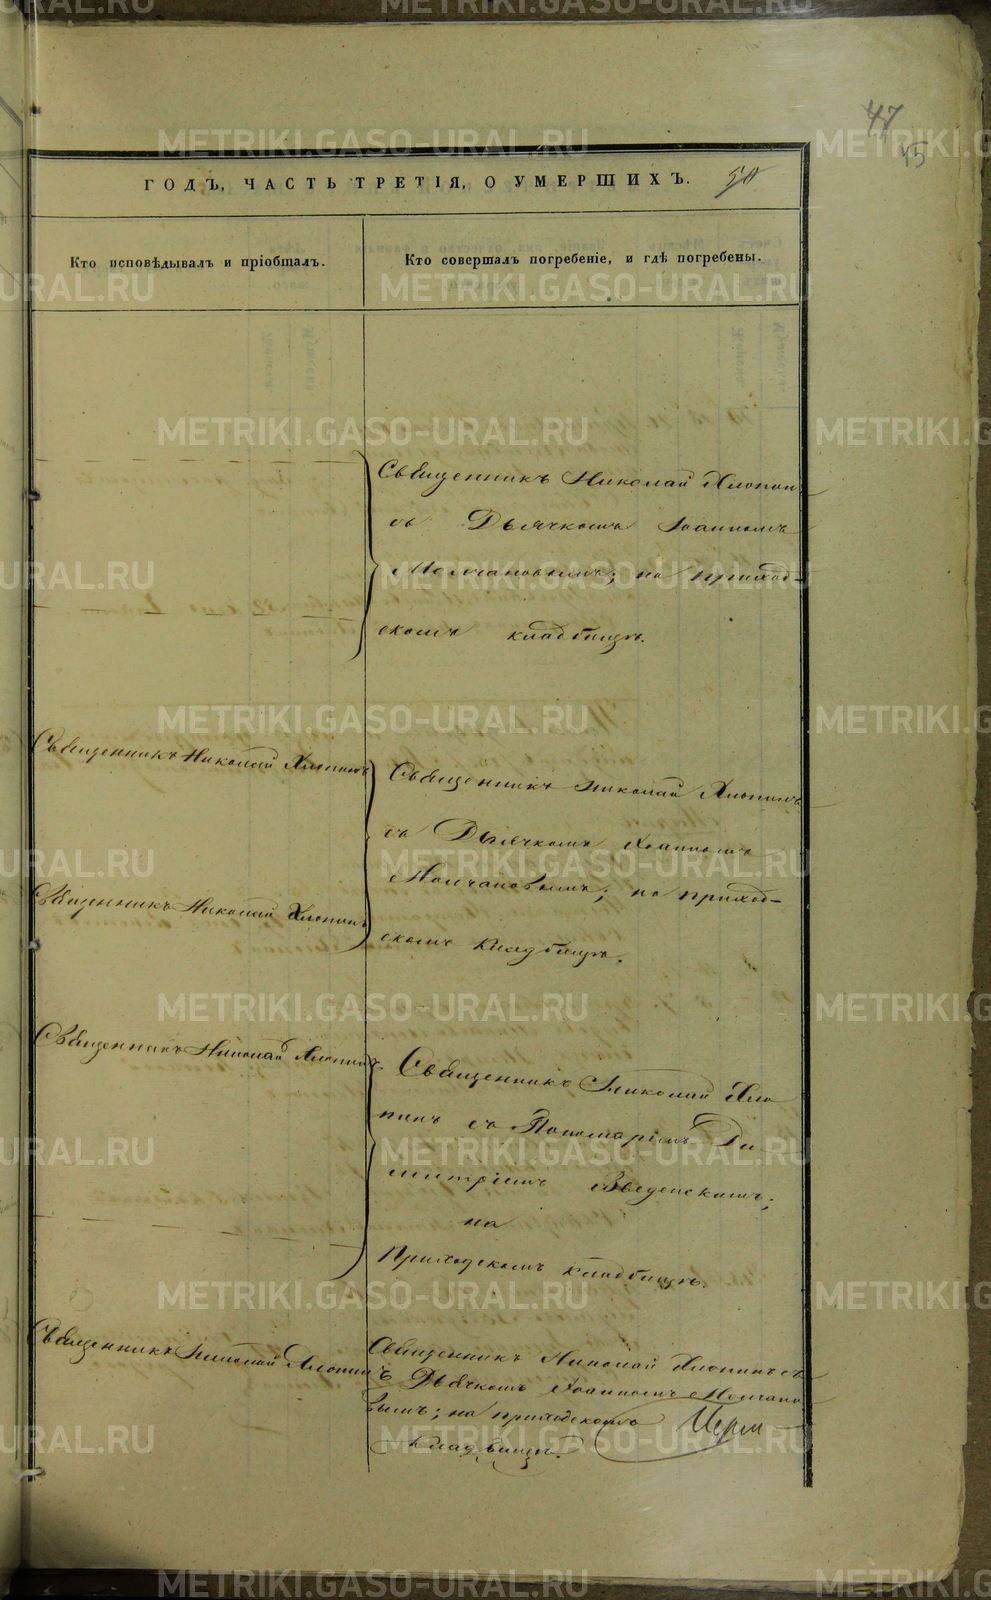 47
45
ГОДЪ, ЧАСТЬ ТРЕТІЯ, О УМЕРШИХЪ.
Кто исповѣдывалъ и пріобщалъ.
Кто совершалъ погребеніе, и гдѣ погребены.
Священникъ Николай Хлопин
съ Дьячкомъ Іоанномъ
Молчановымъ; на приход-
скомъ кладбищѣ.
Священникъ Николай Хлопинъ
Священникъ Николай Хлопинъ
съ Дьячкомъ Іоанномъ
Молчановымъ; на приход-
скомъ кладбищѣ.
Священникъ Николай Хлопинъ
Священникъ Николай Хлопинъ
Священникъ Николай Хло
пинъ съ Пономаремъ Ди
митріемъ Введенскимъ;
на
Приходскомъ кладбищѣ.
Священникъ Николай Хлопинъ
Священникъ Николай Хлопинъ съ
Дьячкомъ Іоанномъ Молчано
вымъ; на приходскомъ
кладбищѣ.
METRIKI.GASO-URAL.RU